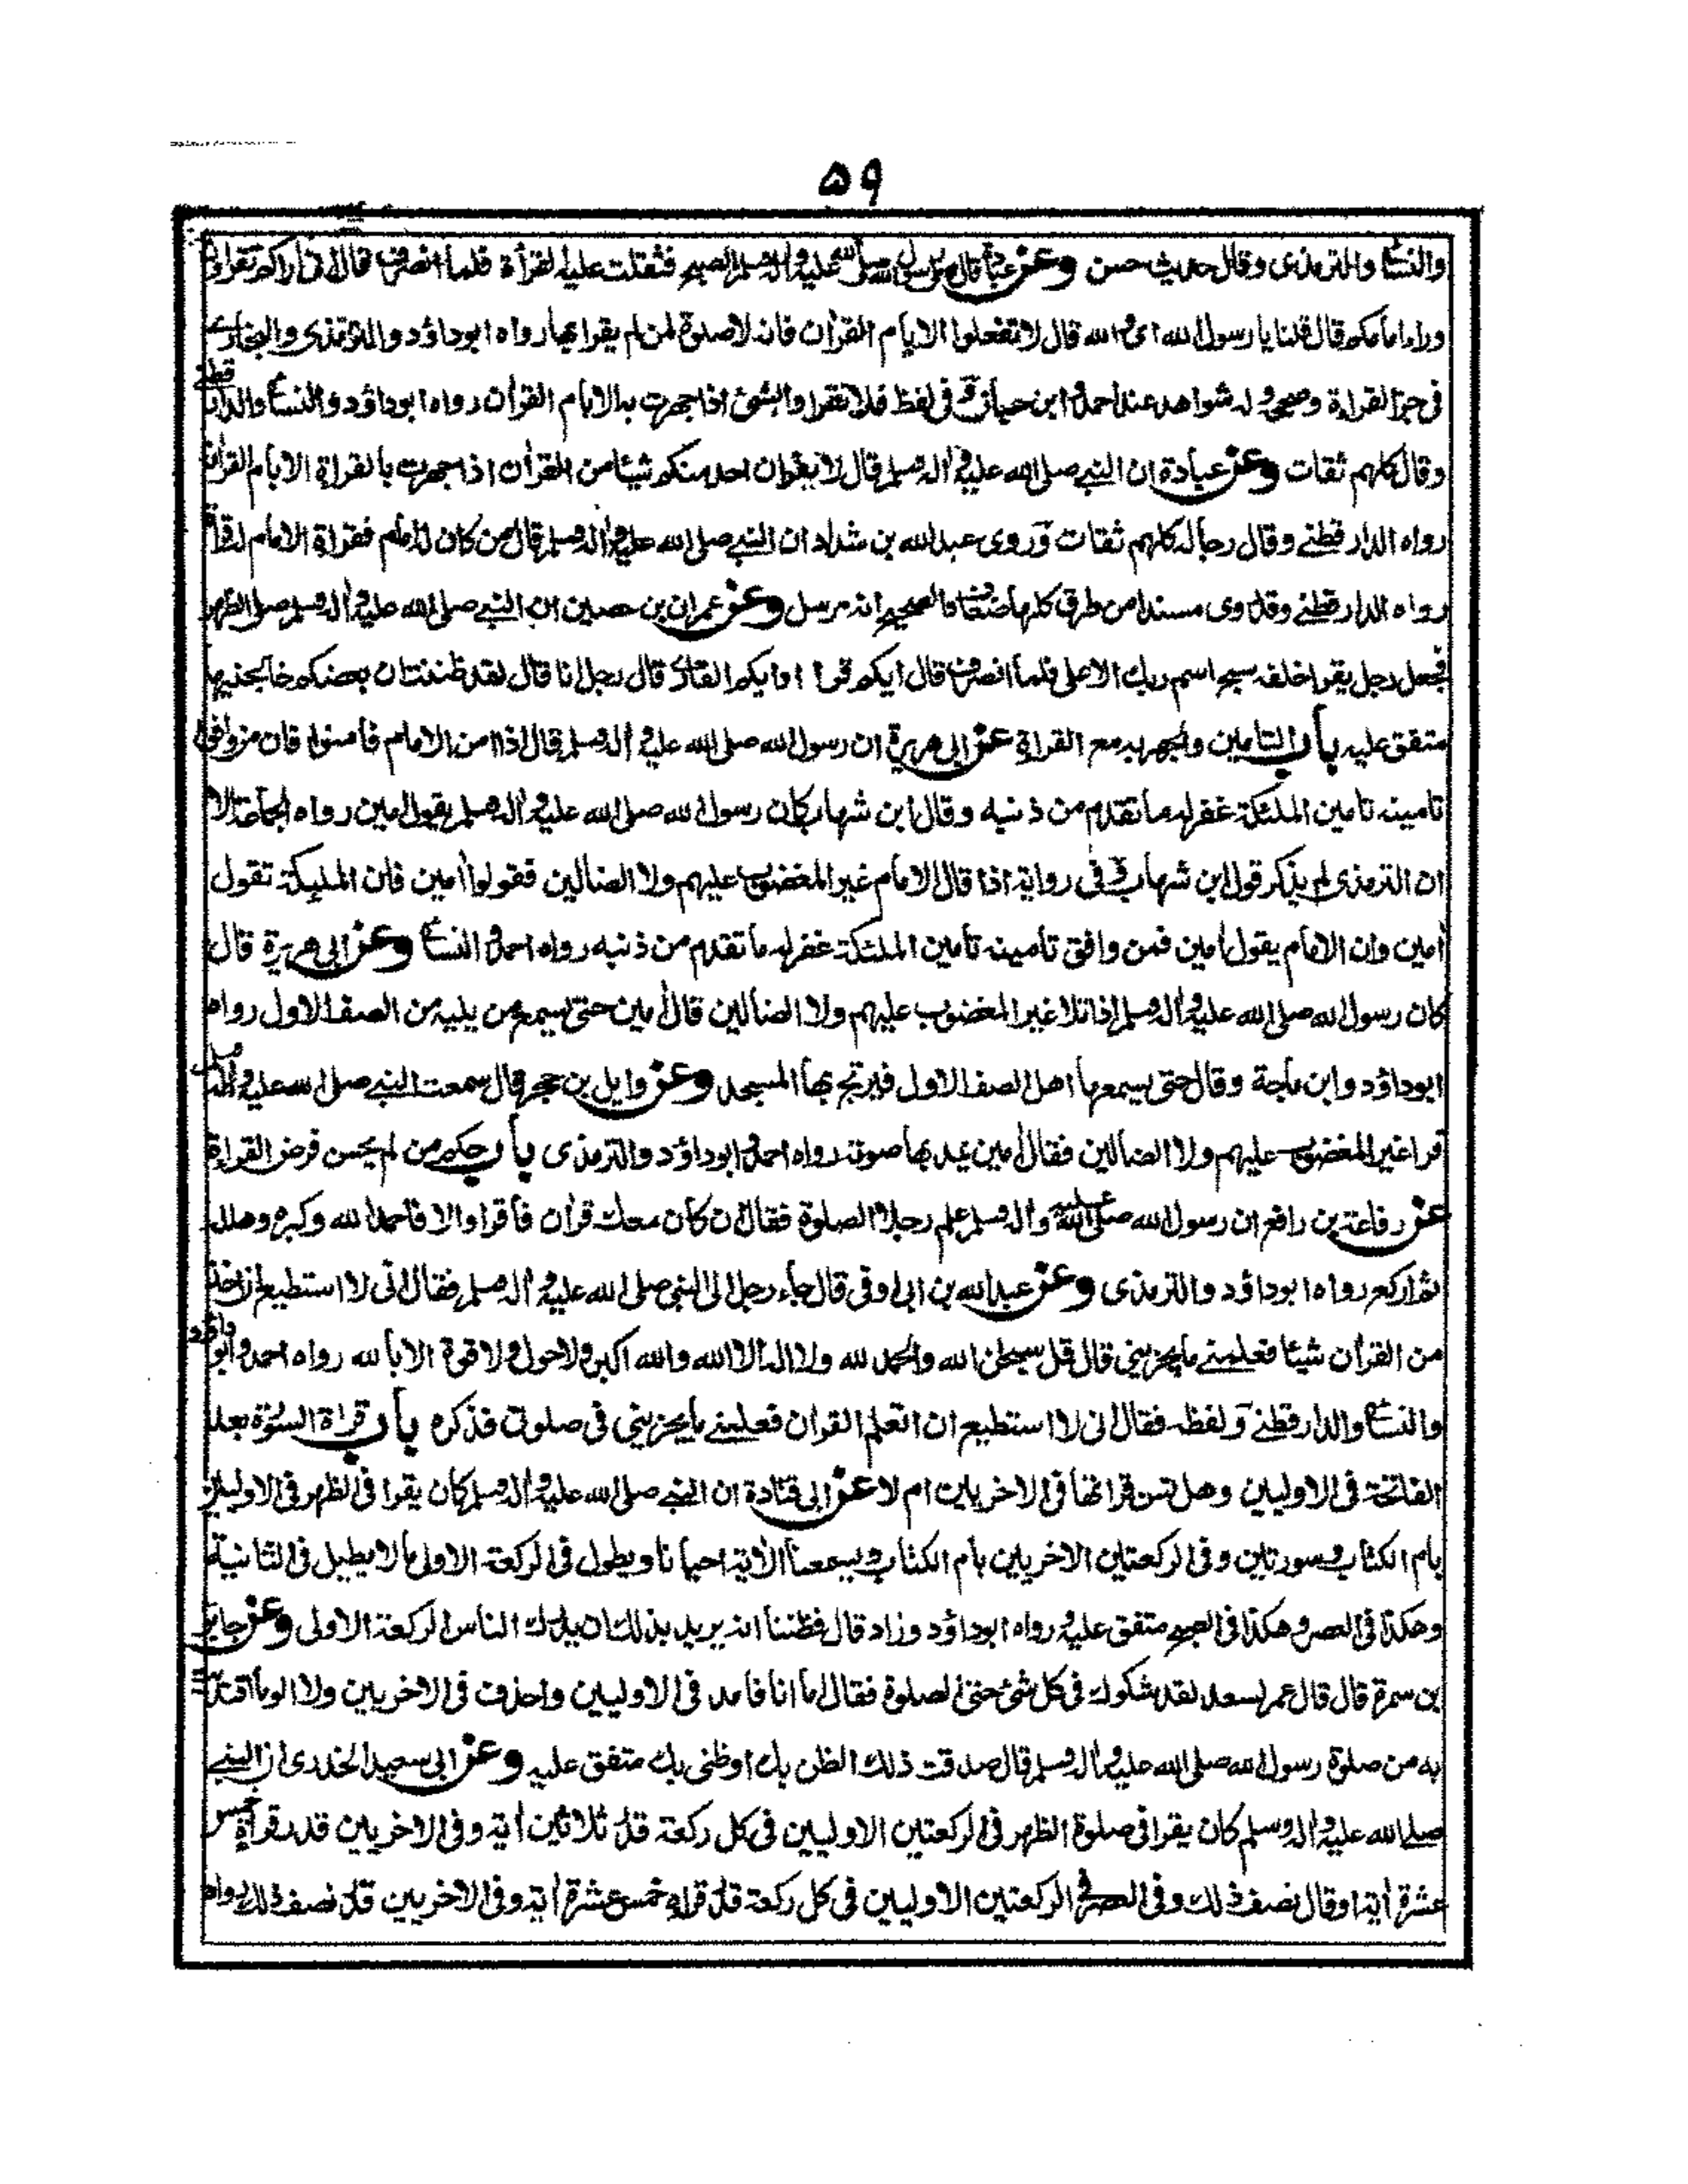 ۵۹
والنسائی والترمذی وقال حدیث حسن وعن عبادة قال صلی رسول الله صلی الله علیه واله وسلم الصبح فثقلت علیه القرأة فلما انصرف قال انی اراکم تقرأون
وراء امامکم قال قلنا یا رسول الله ای والله قال لا تفعلوا الا بام القران فانه لا صلوة لمن لم یقرا بها رواه ابوداؤد والترمذی والبخاری
فی جزء القراءة وصححه وله شواهد عند احمد وابن حبان وفی لفظ فلا تقرا وا بشئ اذا جهرت به الا بام القران رواه ابوداؤد والنسائی والدارقطنی
وقال کلهم ثقات وعن عبادة ان النبی صلی الله علیه واله وسلم قال لا یقران احد منکم شیئا من القران اذا جهرت بالقراة الا بام القران
رواه الدارقطنی وقال رجاله کلهم ثقات وروی عبد الله بن شداد ان النبی صلی الله علیه واله وسلم قال من کان له امام فقراة الامام له قرأة
رواه الدارقطنی وقد روی مسندا من طرق کلها ضعاف والصحیح انه مرسل وعن عمران بن حصین ان النبی صلی الله علیه واله وسلم صلی الظهر
فجعل رجل یقرا خلفه سبح اسم ربک الاعلی فلما انصرف قال ایکم قرا او ایکم القاری قال رجل انا قال لقد ظننت ان بعضکم خالجنیها
متفق علیه باب التامین والجهر به مع القراة عن ابی هریرة ان رسول الله صلی الله علیه واله وسلم قال اذا امن الامام فأمنوا فان من وافق
تامینه تامین الملئکة غفر له ما تقدم من ذنبه وقال ابن شهاب کان رسول الله صلی الله علیه واله وسلم یقول امین رواه الجماعة الا
ان الترمذی لم یذکر قول ابن شهاب وفی روایة اذا قال الامام غیر المغضوب علیهم ولا الضالین فقولوا امین فان الملیکة تقول
امین وان الامام یقول امین فمن وافق تأمینه تأمین الملئکة غفر له ما تقدم من ذنبه رواه احمد والنسائی وعن ابی هریرة قال
کان رسول الله صلی الله علیه واله وسلم اذا تلا غیر المغضوب علیهم ولا الضالین قال امین حتی یسمع من یلیه من الصف الاول رواه
ابوداؤد وابن ماجة وقال حتی یسمعها اهل الصف الاول فیرتج بها المسجد وعن وایل بن حجر قال سمعت النبی صلی الله علیه واله وسلم
قرا غیر المغضوب علیهم ولا الضالین فقال امین یمد بها صوته رواه احمد وابوداؤد والترمذی باب حکم من لم یحسن فرض القراة
عن رفاعة بن رافع ان رسول الله صلی الله علیه واله وسلم علم رجلا الصلوة فقال ان کان معک قران فأقرا والا فاحمد الله وکبره وهلله
ثم ارکع رواه ابوداؤد والترمذی وعن عبد الله بن ابی اوفی قال جاء رجل الی النبی صلی الله علیه واله وسلم فقال انی لا استطیع ان اخذ
من القران شیئا فعلمنی ما یجزینی قال قل سبحن الله والحمد لله ولا اله الا الله والله اکبر ولا حول ولا قوة الا بالله رواه احمد وابو داؤد
والنسائی والدارقطنی ولفظه فقال انی لا استطیع ان اتعلم القران فعلمنی ما یجزینی فی صلوتی فذکره باب قراة السورة بعد
الفاتحة فی الاولیین وهل تسن قراتها فی الاخریین ام لا عن ابی قتادة ان النبی صلی الله علیه واله وسلم کان یقرا فی الظهر فی الاولیین
بام الکتاب وسورتین وفی الرکعتین الاخریین بام الکتاب ویسمعنا الایة احیانا ویطول فی الرکعة الاولی ما لا یطیل فی الثانیة
وهکذا فی العصر وهکذا فی الصبح متفق علیه ورواه ابوداؤد وزاد قال فظننا انه یرید بذلک ان یدرک الناس الرکعة الاولی وعن جابر
بن سمرة قال قال عمر لسعد لقد شکوک فی کل شئ حتی الصلوة فقال اما انا فامد فی الاولیین واحذف فی الاخریین ولا الوما اقتدیت
به من صلوة رسول الله صلی الله علیه واله وسلم قال صدقت ذلک الظن بک او ظنی بک متفق علیه وعن ابی سعید الخدری ان النبی
صلی الله علیه واله وسلم کان یقرا فی صلوة الظهر فی الرکعتین الاولیین فی کل رکعة قدر ثلاثین ایة وفی الاخریین قدر قراءة خمس
عشرة ایة او قال نصف ذلک وفی العصر فی الرکعتین الاولیین فی کل رکعة قدر قراءة خمس عشرة ایة وفی الاخریین قدر نصف ذلک رواه